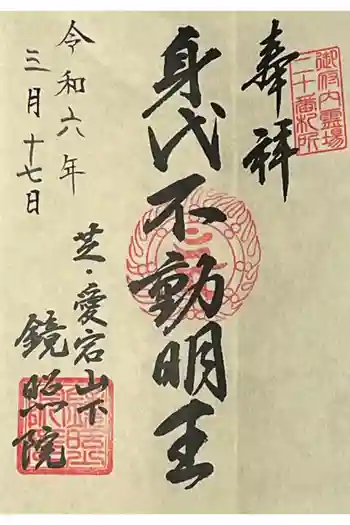 奉拝
御府内霊場
二十番札所
身代不動明王
令和六年
三月十七日
芝・愛宕山下
鏡照院